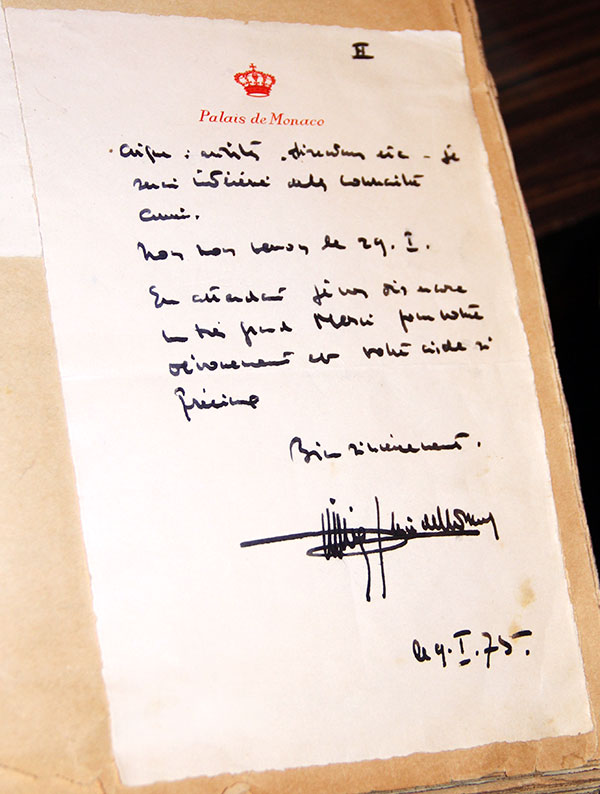 II
Palais de Monaco
cirque : artistes, directeurs etc - je
serai intéressé de connaître
Nous nous verrons le 29. I.
En attendant je vous dis encore
un très grand Merci pour votre
dévouement et votre aide si
précieuse
Bien sincèrement.
le 9. I. 75.